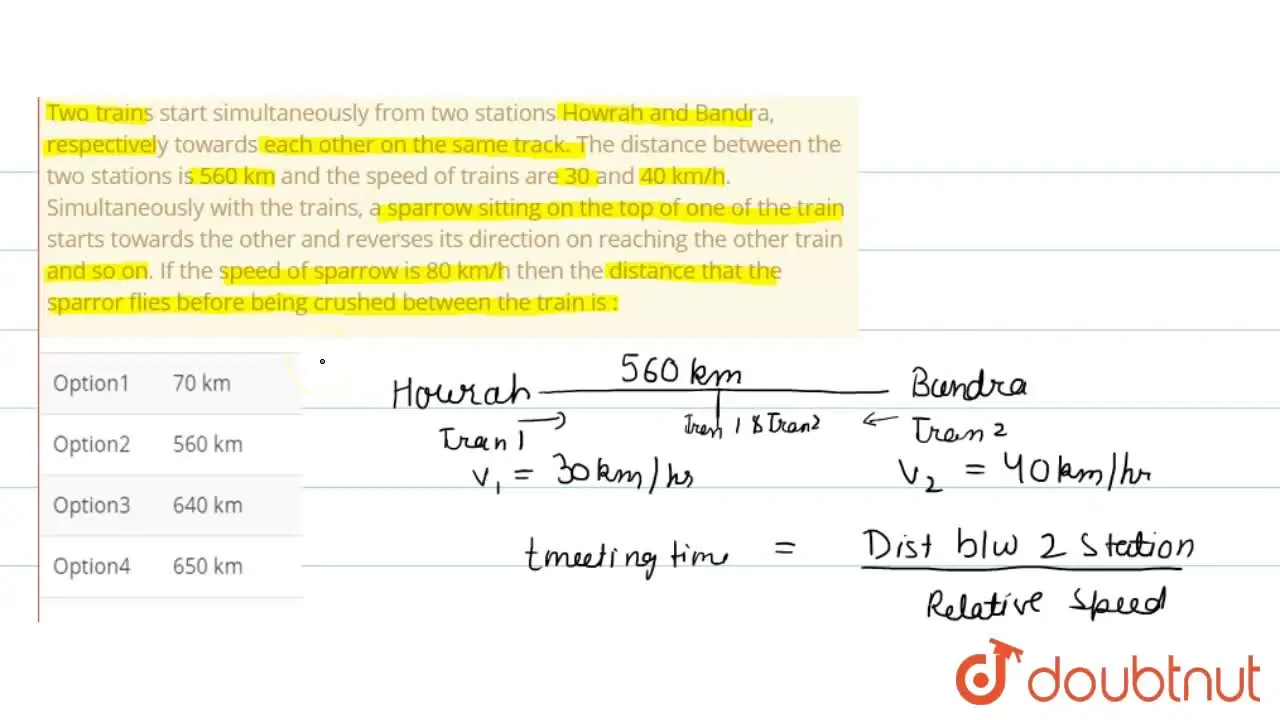 Two trains start simultaneously from two stations Howrah and Bandra,
respectively towards each other on the same track. The distance between the
two stations is 560 km and the speed of trains are 30 and 40 km/h.
Simultaneously with the trains, a sparrow sitting on the top of one of the train
starts towards the other and reverses its direction on reaching the other train
and so on. If the speed of sparrow is 80 km/h then the distance that the
sparror flies before being crushed between the train is :
Option1 70 km
Option2 560 km
Option3 640 km
Option4 650 km
Howrah 560 km Bundra
Tran 1 Tren 1 & Tran 2 Tran 2
V1 = 30 km/hr V2 = 40 km/hr
tmeeting time = Dist b/w 2 Station
Relative Speed
doubtnut